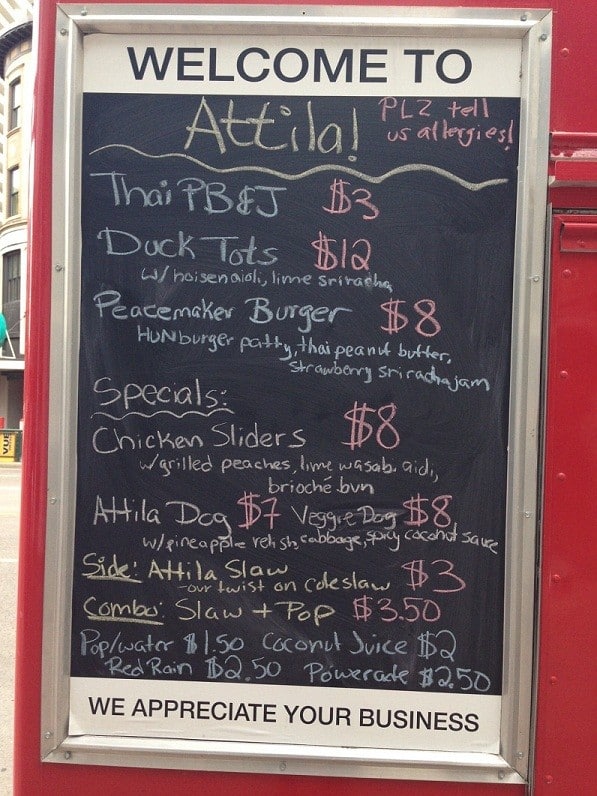 WELCOME TO
Attila!
PLZ tell
us allergies!
Thai PB&J $3
Duck Tots $12
w/ hoisen aioli, lime sriracha
Peacemaker Burger $8
HUNburger patty, thai peanut butter,
strawberry sriracha jam
Specials:
Chicken Sliders $8
w/grilled peaches, lime wasabi aioli,
brioché bun
Attila Dog $7 Veggie Dog $8
w/pineapple relish, cabbage, spicy coconut sauce
Side: Attila Slaw $3
-our twist on coleslaw
Combo: Slaw + Pop $3.50
Pop/water $1.50 Coconut Juice $2
Red Rain $2.50 Powerade $2.50
WE APPRECIATE YOUR BUSINESS